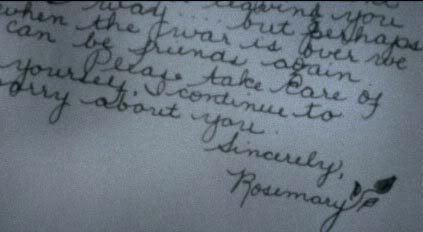 way... leaving you
when the war is over we
can be friends again.
Please take care of
yourself. I continue to
worry about you.
Sincerely,
Rosemary